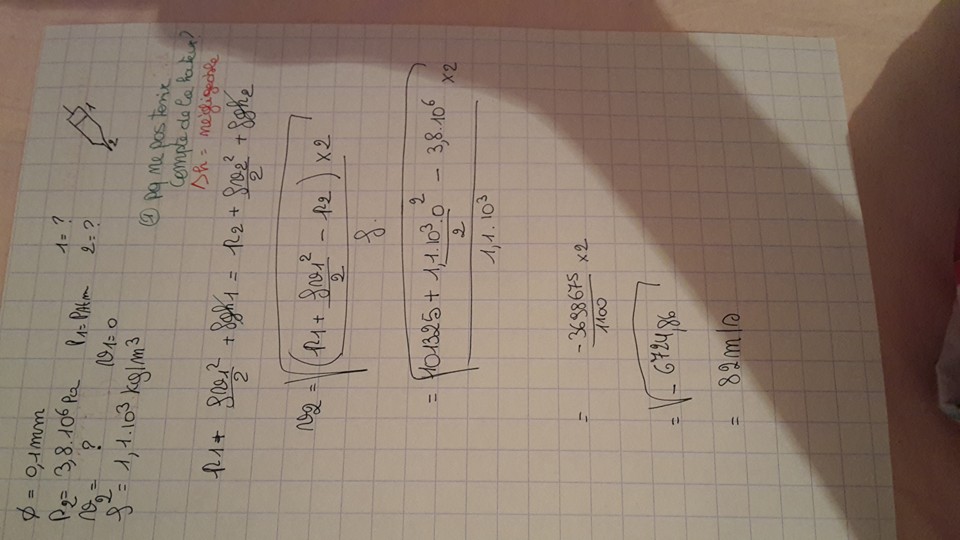 φ = 0,1 mm
P2 = 3,8.10⁶ Pa P1 = PAtm 1 = ?
v2 = ? v1 = 0 2 = ?
ρ = 1,1.10³ kg/m³
1
2
① pq ne pas tenir
compte de la hauteur?
Δh = négligeable
P1 + ρv1²/2 + ρgh1 = P2 + ρv2²/2 + ρgh2
v2 = √((P1 + ρv1²/2 - P2) x2 / ρ)
= √((101325 + 1,1.10³.0²/2 - 3,8.10⁶) x2 / 1,1.10³)
= -3698675/1100 x2
= √-6724,86
= 82 m/s